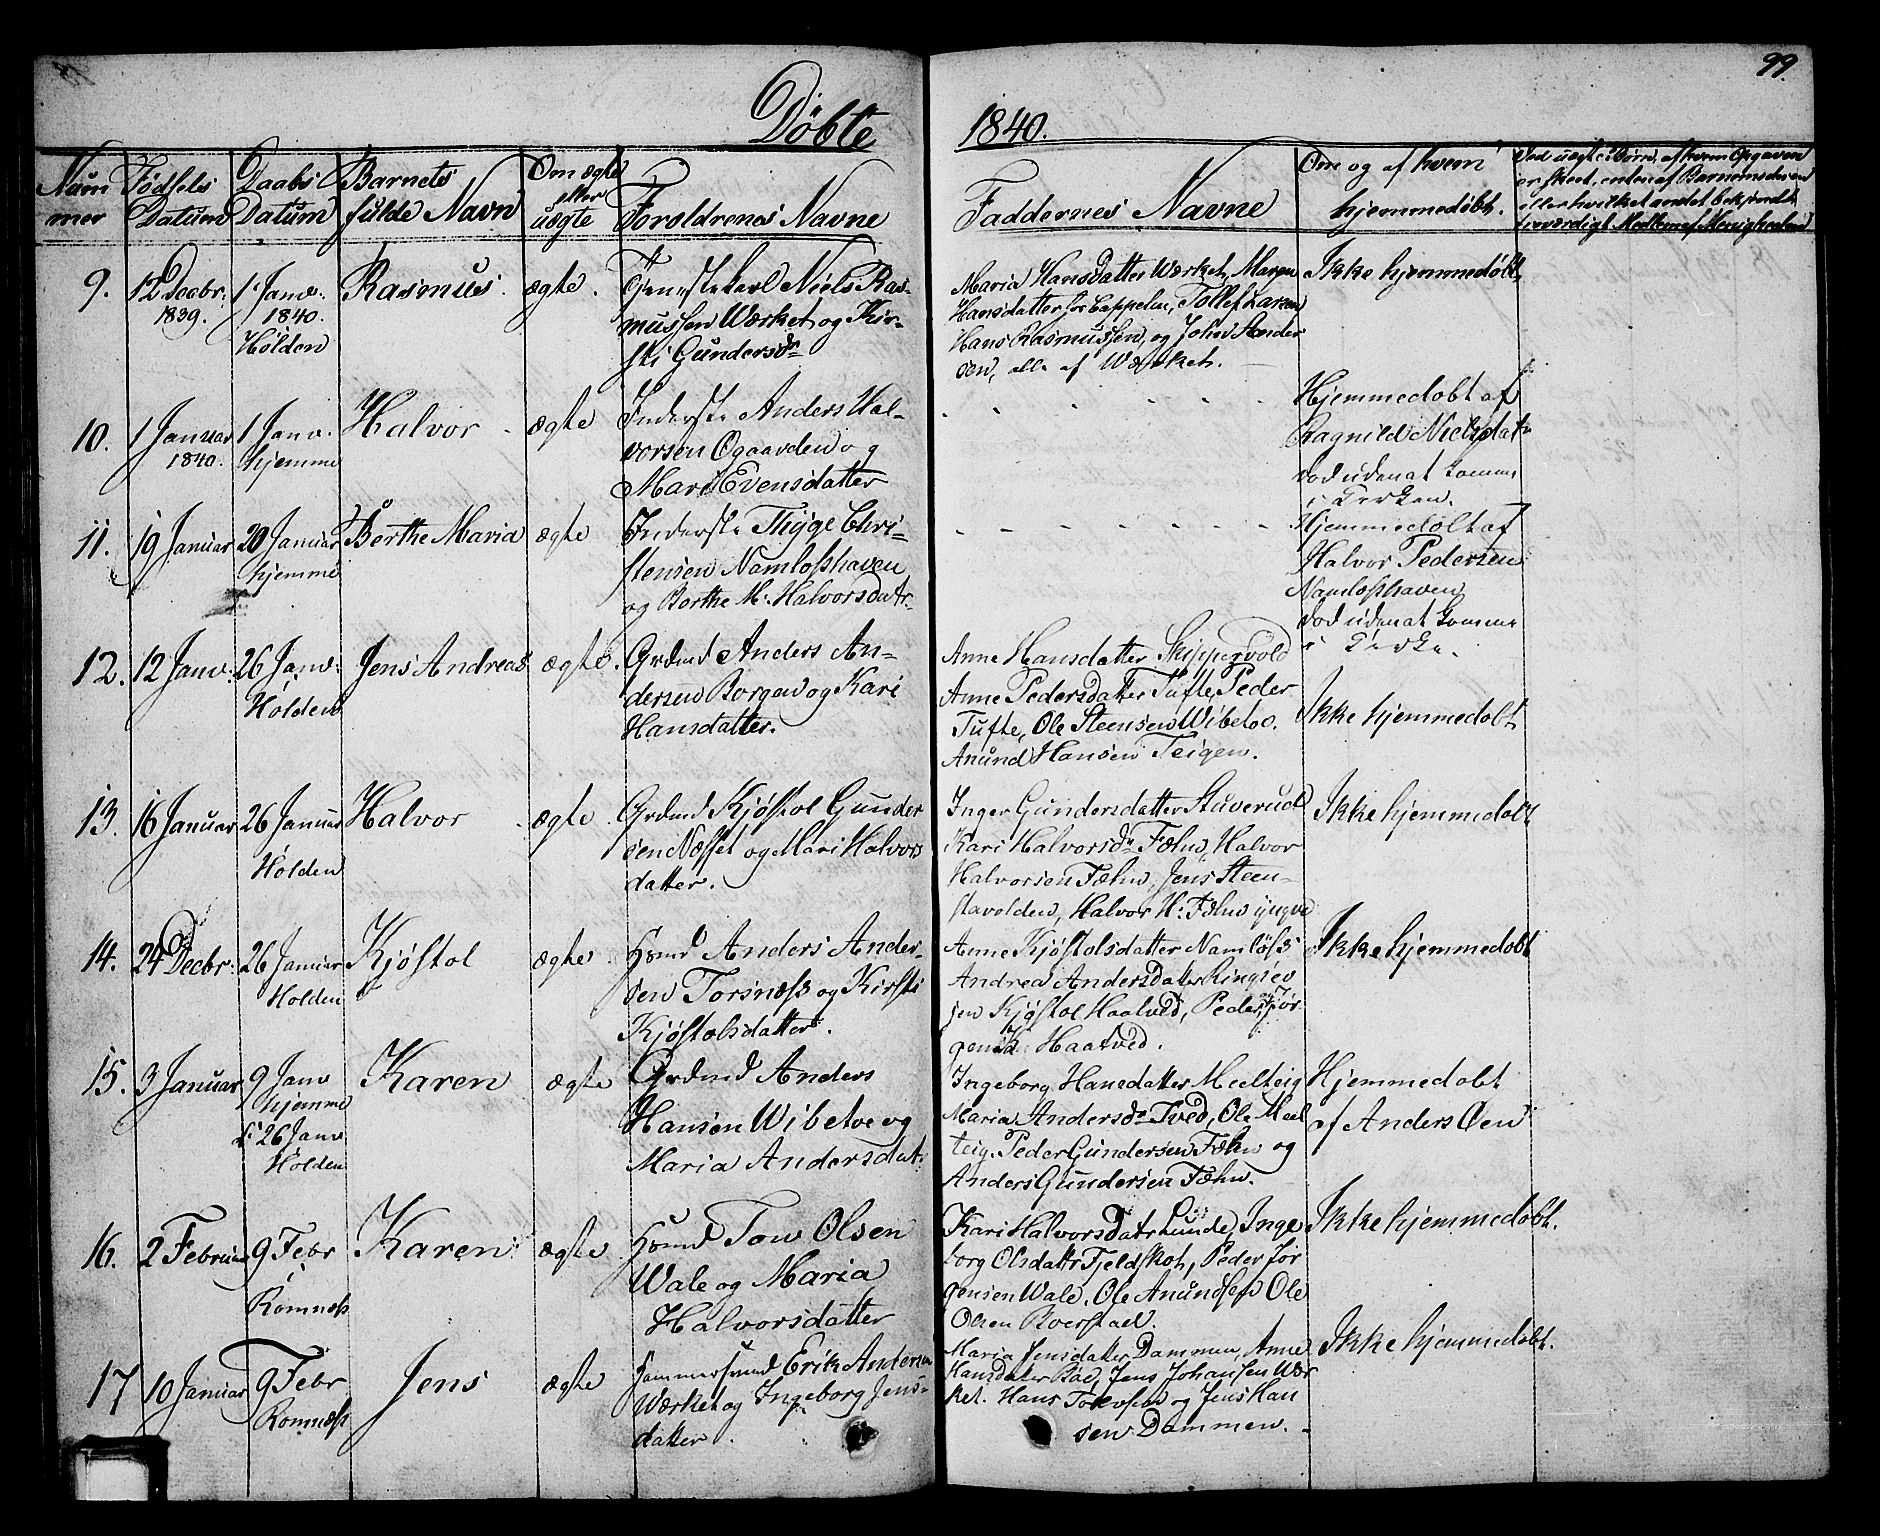 99.
Døbte 1840.
Nummer
Fødsels Datum
Daabs Datum
Barnets fulde Navn
Om ægte eller uægte
Forældrenes Navne
Faddernes Navne
Om og af hvem hjemmedøbt.
Ved uægte Børn, af hvem Opgaven
er skeet, enten af Barnemoderen
eller hvilket andet bekjendt
troværdigt Medlem af Menigheden
9. 12 Decbr: 1839. 1 Janv: 1840. Holden Rasmus. ægte.
Tjenestekarl Niels Ras-
mussen Værket og Kir-
sti Gundersdr
Maria Hansdatter Værket, Maren
Hansdatter for Cappelen, Tollef Larsen
Hans Rasmussen, og Johs Ander
sen, alle af Værket.
Ikke hjemmedøbt,
10. 1 Januar 1840. 1 Janv. hjemme Halvor ægte
Inderste Anders Hal-
vorsen Ogaarden og
Mari Evensdatter
Hjemmedobt af
Ragnild Nielsdatr
dod uden at komme
i Kirken.
11. 19 Januar 20 Januar hjemme Berthe Maria ægte
Inderste Thyge Chri-
stensen Namloshaven
og Berthe M: Halvorsdatr.
Hjemmedobt af
Halvor Pedersen
Namløshaven
dod uden at komme
i Kirke.
12. 12 Janv: 26 Janv: Holden Jens Andreas ægte.
Grdmd Anders An-
dersen Borgen og Kari
Hansdatter.
Anne Hansdatter Skippervold
Anne Pedersdatter Tufte, Peder
Tufte, Ole Steensen Wibetoe.
Anund Hansen Teigen.
Ikke hjemmedobt
13. 16 Januar 26 Januar Holden Halvor ægte.
Grdmd Kjøstol Gunder
sen Næsset og Mari Halvors
datter.
Inger Gundersdatter Stuverud
Kari Halvorsdr Fæhn, Halvor
Halvorsen Fæhn, Jens Steen-
stavolden, Halvor H: Fæhn yngre
Ikke hjemmedobt
14. 24 Decbr: 26 Januar Holden Kjøstol ægte
Hsmd Anders Ander-
sen Torsnæss og Kirsti
Kjøstolsdatter.
Anne Kjøstolsdatter Namløss
Andrea Andersdatter Ringsev
jen Kjøstol Haatved, Peder Jør
gensen Haatved.
Ikke hjemmedobt
15. 3 Januar 9 Janv hjemme 26 Janv Holden Karen ægte
Grdmd Anders
Hansen Wibetoe og
Maria Andersdatr
Ingeborg Hansdatter Meelteig
Maria Andersdr Tved, Ole Meel
teig. Peder Gundersen Fæhn og
Anders Gundersen Fæhn.
Hjemmedobt
af Anders Øen
16. 2 Februar 9 Febr Romnæs Karen ægte
Hsmd Tov Olsen
Wale og Maria
Halvorsdatter
Kari Halvorsdatr Lunde, Inge
borg Olsdattr Fjeldskot, Peder Jør
gensen Wale. Ole Anundsen Ole
Olsen Roerstad.
Ikke hjemmedobt.
17 10 Januar 9 Febr Romnæs Jens ægte
Hammersmd Erik Andersen
Værket og Ingeborg Jens-
datter.
Maria Jensdatter Dammen, Anne
Hansdatter Bøe, Jens Johansen Vær
ket. Hans og Jens Han
sen Dammen.
Ikke hjemmedobt.